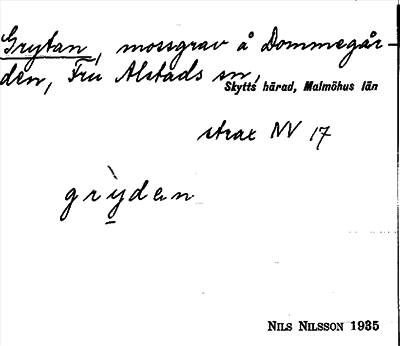 Grytan, mossgrav å Dommegår-
den, Fru Alstads sn,
Skytts härad, Malmöhus län
strax NV 17
grỳden
NILS NILSSON 1935